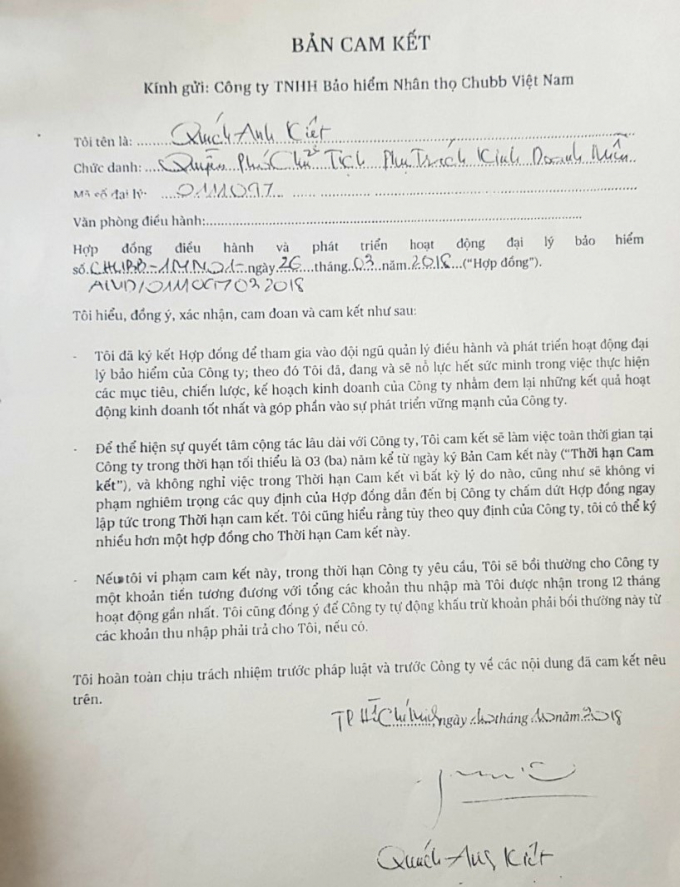 BẢN CAM KẾT
Kính gửi: Công ty TNHH Bảo hiểm Nhân thọ Chubb Việt Nam
Tôi tên là: Quách Anh Kiệt
Chức danh: Quyền Phó Chủ Tịch Phụ Trách Kinh Doanh Miền
Mã số đại lý: 011097
Văn phòng điều hành:
Hợp đồng điều hành và phát triển hoạt động đại lý bảo hiểm
số. ngày.26.tháng.03.năm.2018...("Hợp đồng").
Tôi hiểu, đồng ý, xác nhận, cam đoan và cam kết như sau:
- Tôi đã ký kết Hợp đồng để tham gia vào đội ngũ quản lý điều hành và phát triển hoạt động đại
lý bảo hiểm của Công ty; theo đó Tôi đã, đang và sẽ nỗ lực hết sức mình trong việc thực hiện
các mục tiêu, chiến lược, kế hoạch kinh doanh của Công ty nhằm đem lại những kết quả hoạt
động kinh doanh tốt nhất và góp phần vào sự phát triển vững mạnh của Công ty.
- Để thể hiện sự quyết tâm cộng tác lâu dài với Công ty, Tôi cam kết sẽ làm việc toàn thời gian tại
Công ty trong thời hạn tối thiểu là 03 (ba) năm kể từ ngày ký Bản Cam kết này ("Thời hạn Cam
kết"), và không nghỉ việc trong Thời hạn Cam kết vì bất kỳ lý do nào, cũng như sẽ không vi
phạm nghiêm trọng các quy định của Hợp đồng dẫn đến bị Công ty chấm dứt Hợp đồng ngay
lập tức trong Thời hạn cam kết. Tôi cũng hiểu rằng tùy theo quy định của Công ty, tôi có thể ký
nhiều hơn một hợp đồng cho Thời hạn Cam kết này.
- Nếu tôi vi phạm cam kết này, trong thời hạn Công ty yêu cầu, Tôi sẽ bồi thường cho Công ty
một khoản tiền tương đương với tổng các khoản thu nhập mà Tôi được nhận trong 12 tháng
hoạt động gần nhất. Tôi cũng đồng ý để Công ty tự động khấu trừ khoản phải bồi thường này từ
các khoản thu nhập phải trả cho Tôi, nếu có.
Tôi hoàn toàn chịu trách nhiệm trước pháp luật và trước Công ty về các nội dung đã cam kết nêu
trên.
TP Hồ Chí Minh, ngày tháng năm 2018
Quách Anh Kiệt